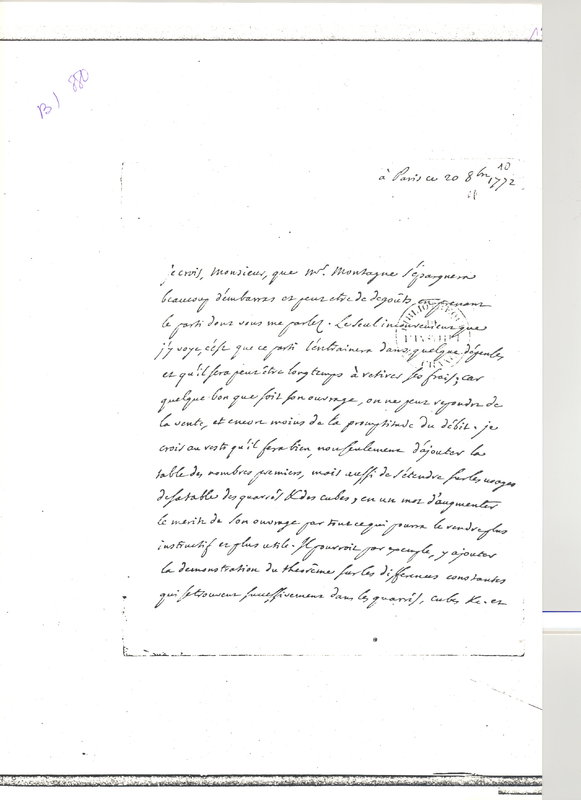 B) 880
10
à Paris ce 20 8bre 1772
je crois, Monsieur, que Mr. Montagne s'épargnera
beaucoup d'embarras et peut etre de degoûts, en prenant
le parti dont vous me parlez. Le seul inconvenient que
j'y voye, c'est que ce parti l'entrainera dans quelque dépense,
et qu'il sera peut être longtemps à retirer ses frais; car
quelque bon que soit son ouvrage, on ne peut repondre de
la vente, et encore moins de la promptitude du débit. je
crois au reste qu'il fera bien, non seulement d'ajouter la
table des nombres premiers, mais aussi de s'étendre sur les usages
de sa table des quarrés &c des cubes; en un mot d'augmenter
le merite de son ouvrage par tout ce qui pourra le rendre plus
instructif et plus utile. Il pourroit par exemple, y ajouter
la demonstration du theorême sur les differences constantes
qui se trouvent successivement dans les quarrés, cubes &c. et